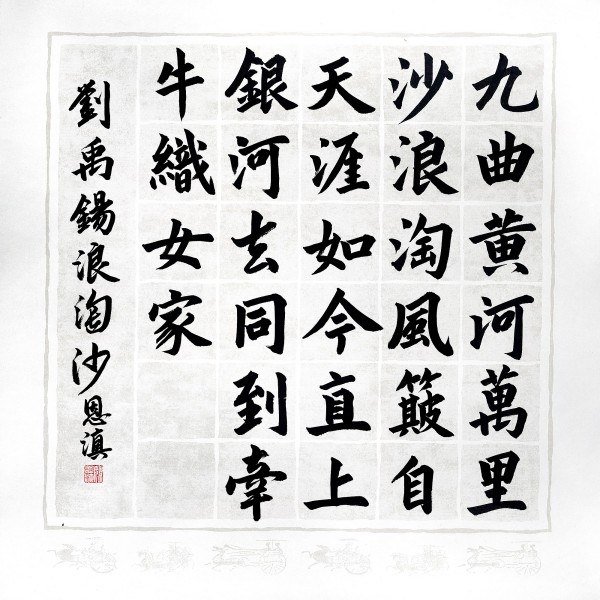 九曲黄河萬里
沙浪淘風簸自
天涯如今直上
銀河去同到牽
牛織女家
劉禹錫浪淘沙恩滇